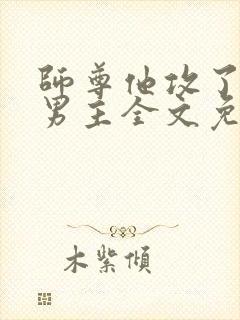 师尊他攻了
男主全文免
木紫倾